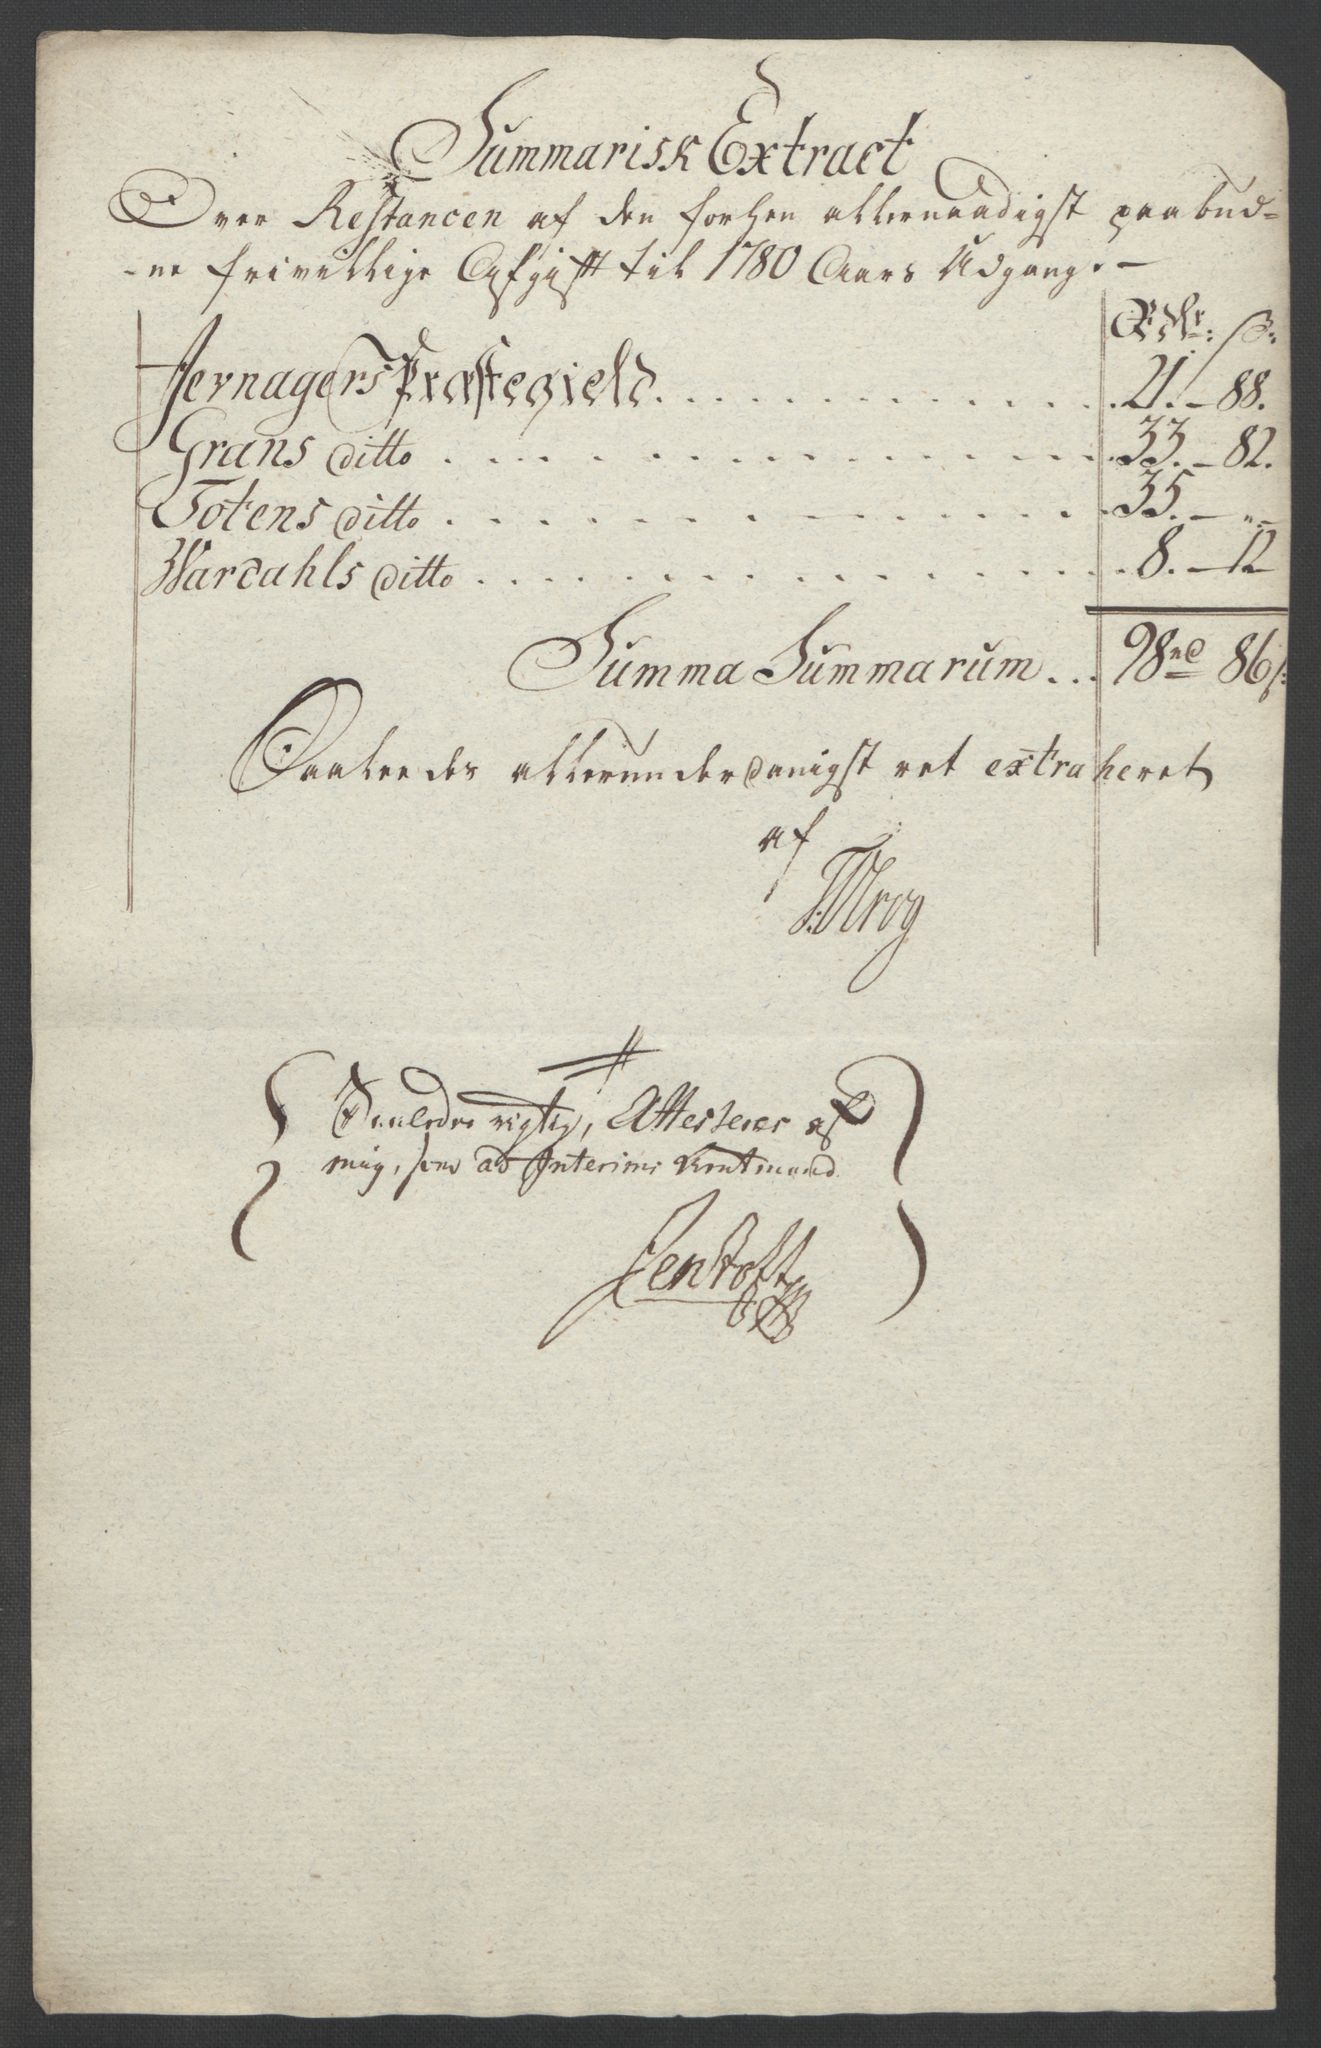 Summarisk Extract
Over Restancen af den forhen allernaadigst paabud-
-ne frivillige Afgift til 1780 Aars Udgang. -
Rdlr: ß:
Jevnagers Præstegield. 21. - 88.
Grans ditto 33. - 82.
Totens ditto 35. - „ -
Wardahls ditto 8. - 12
Summa Summarum 98rd 86ß:
Saaledes allerunderdanigst ret extraheret
af
Saaledes rigtig, Attesterer af
mig, som ad Interims Rentmand
Lentoft